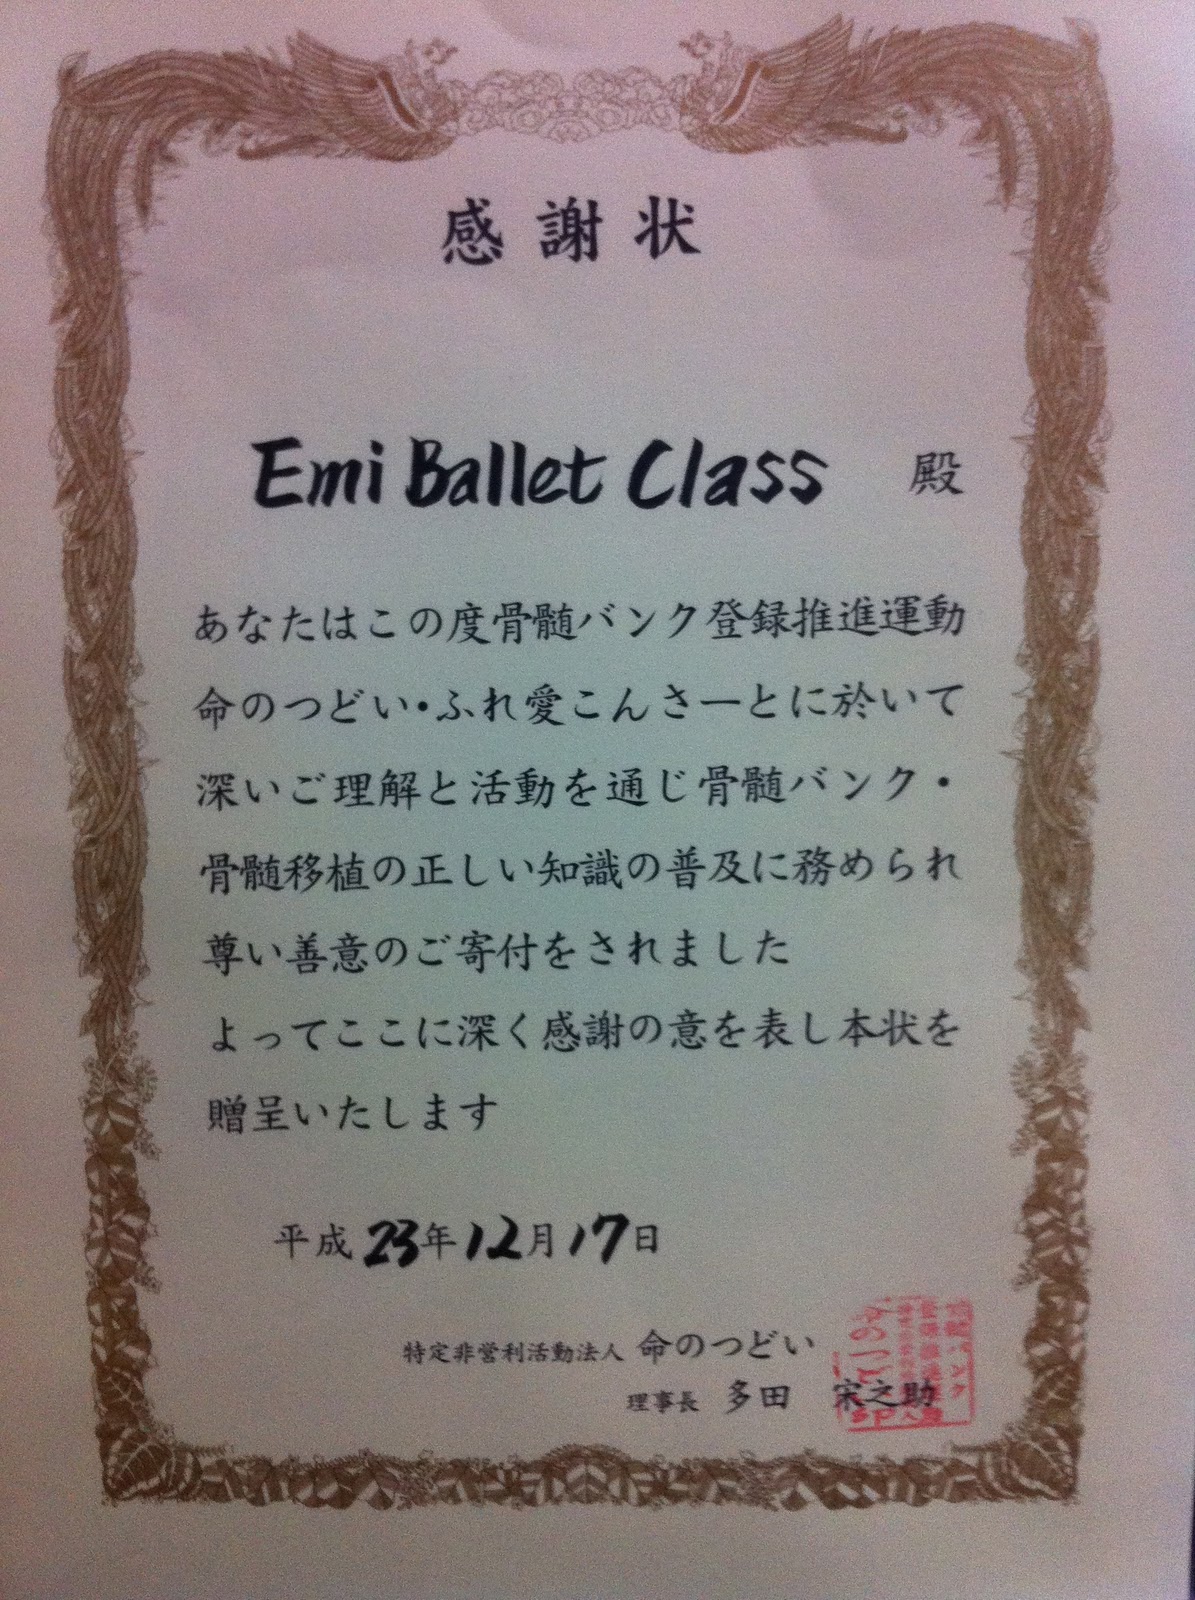 感謝状
Emi Ballet Class 殿
あなたはこの度骨髄バンク登録推進運動
命のつどい・ふれ愛こんさーとに於いて
深いご理解と活動を通じ骨髄バンク・
骨髄移植の正しい知識の普及に務められ
尊い善意のご寄付をされました
よってここに深く感謝の意を表し本状を
贈呈いたします
平成23年12月17日
特定非営利活動法人 命のつどい
理事長 多田 宋之助